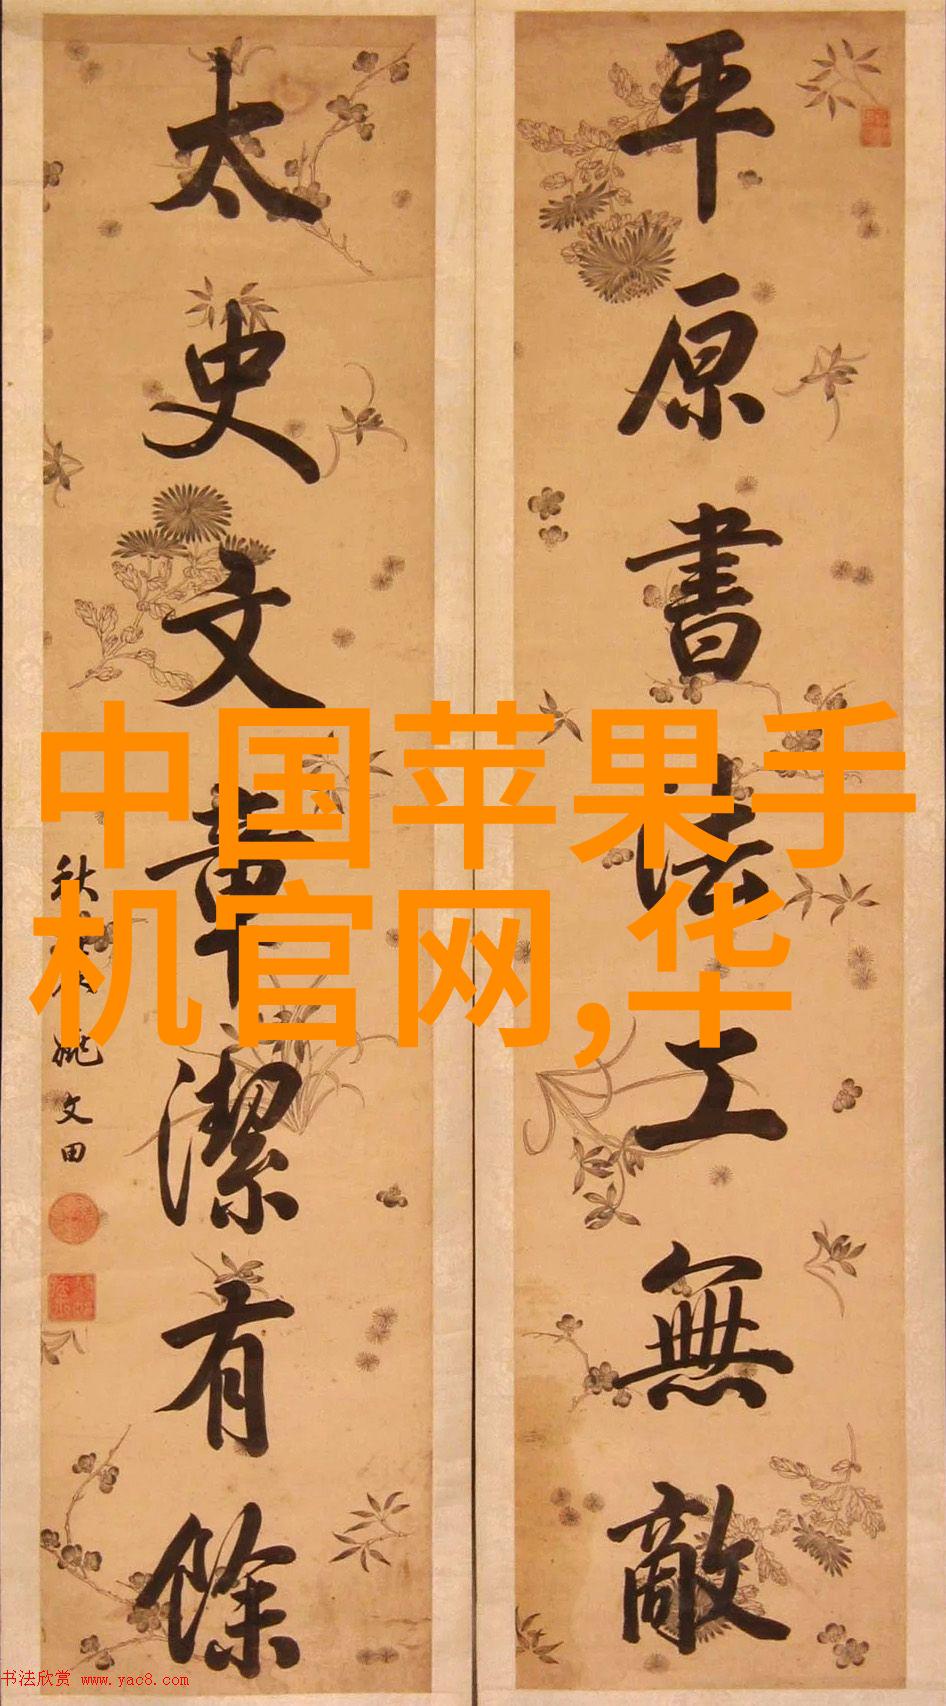 平原書法工無敵
太史文章潔有餘
姚文田
中国苹果手
机官网,华
书法欣赏 www.yac8.com